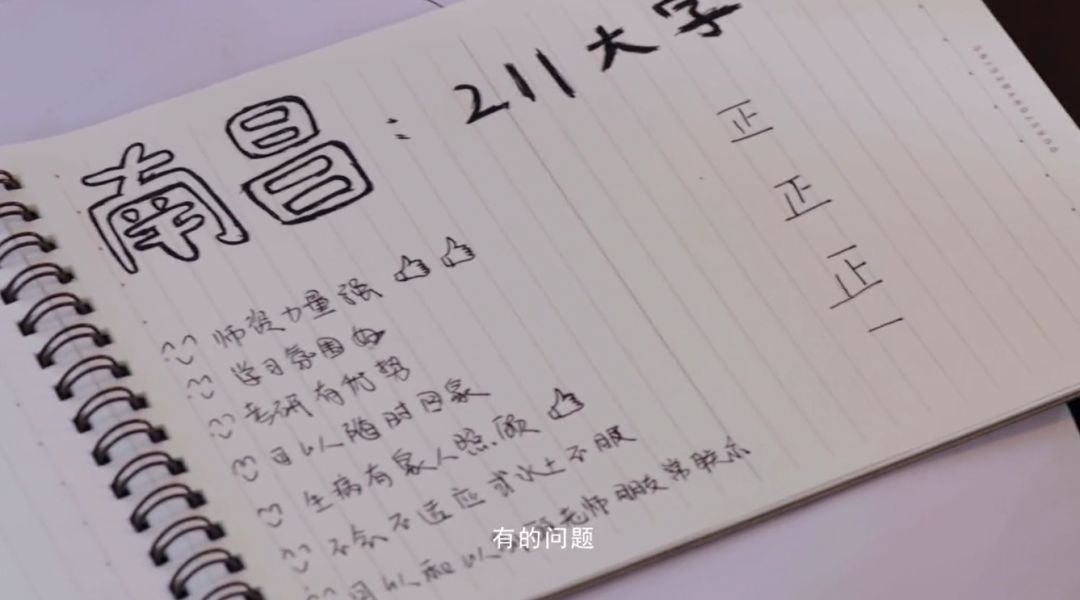 南昌：211大学
正
正
正
一
师资力量强
学习氛围好
考研有优势
可以随时回家
生病有家人照顾
不会不适应或水土不服
可以和以 老师朋友常联系
有的问题